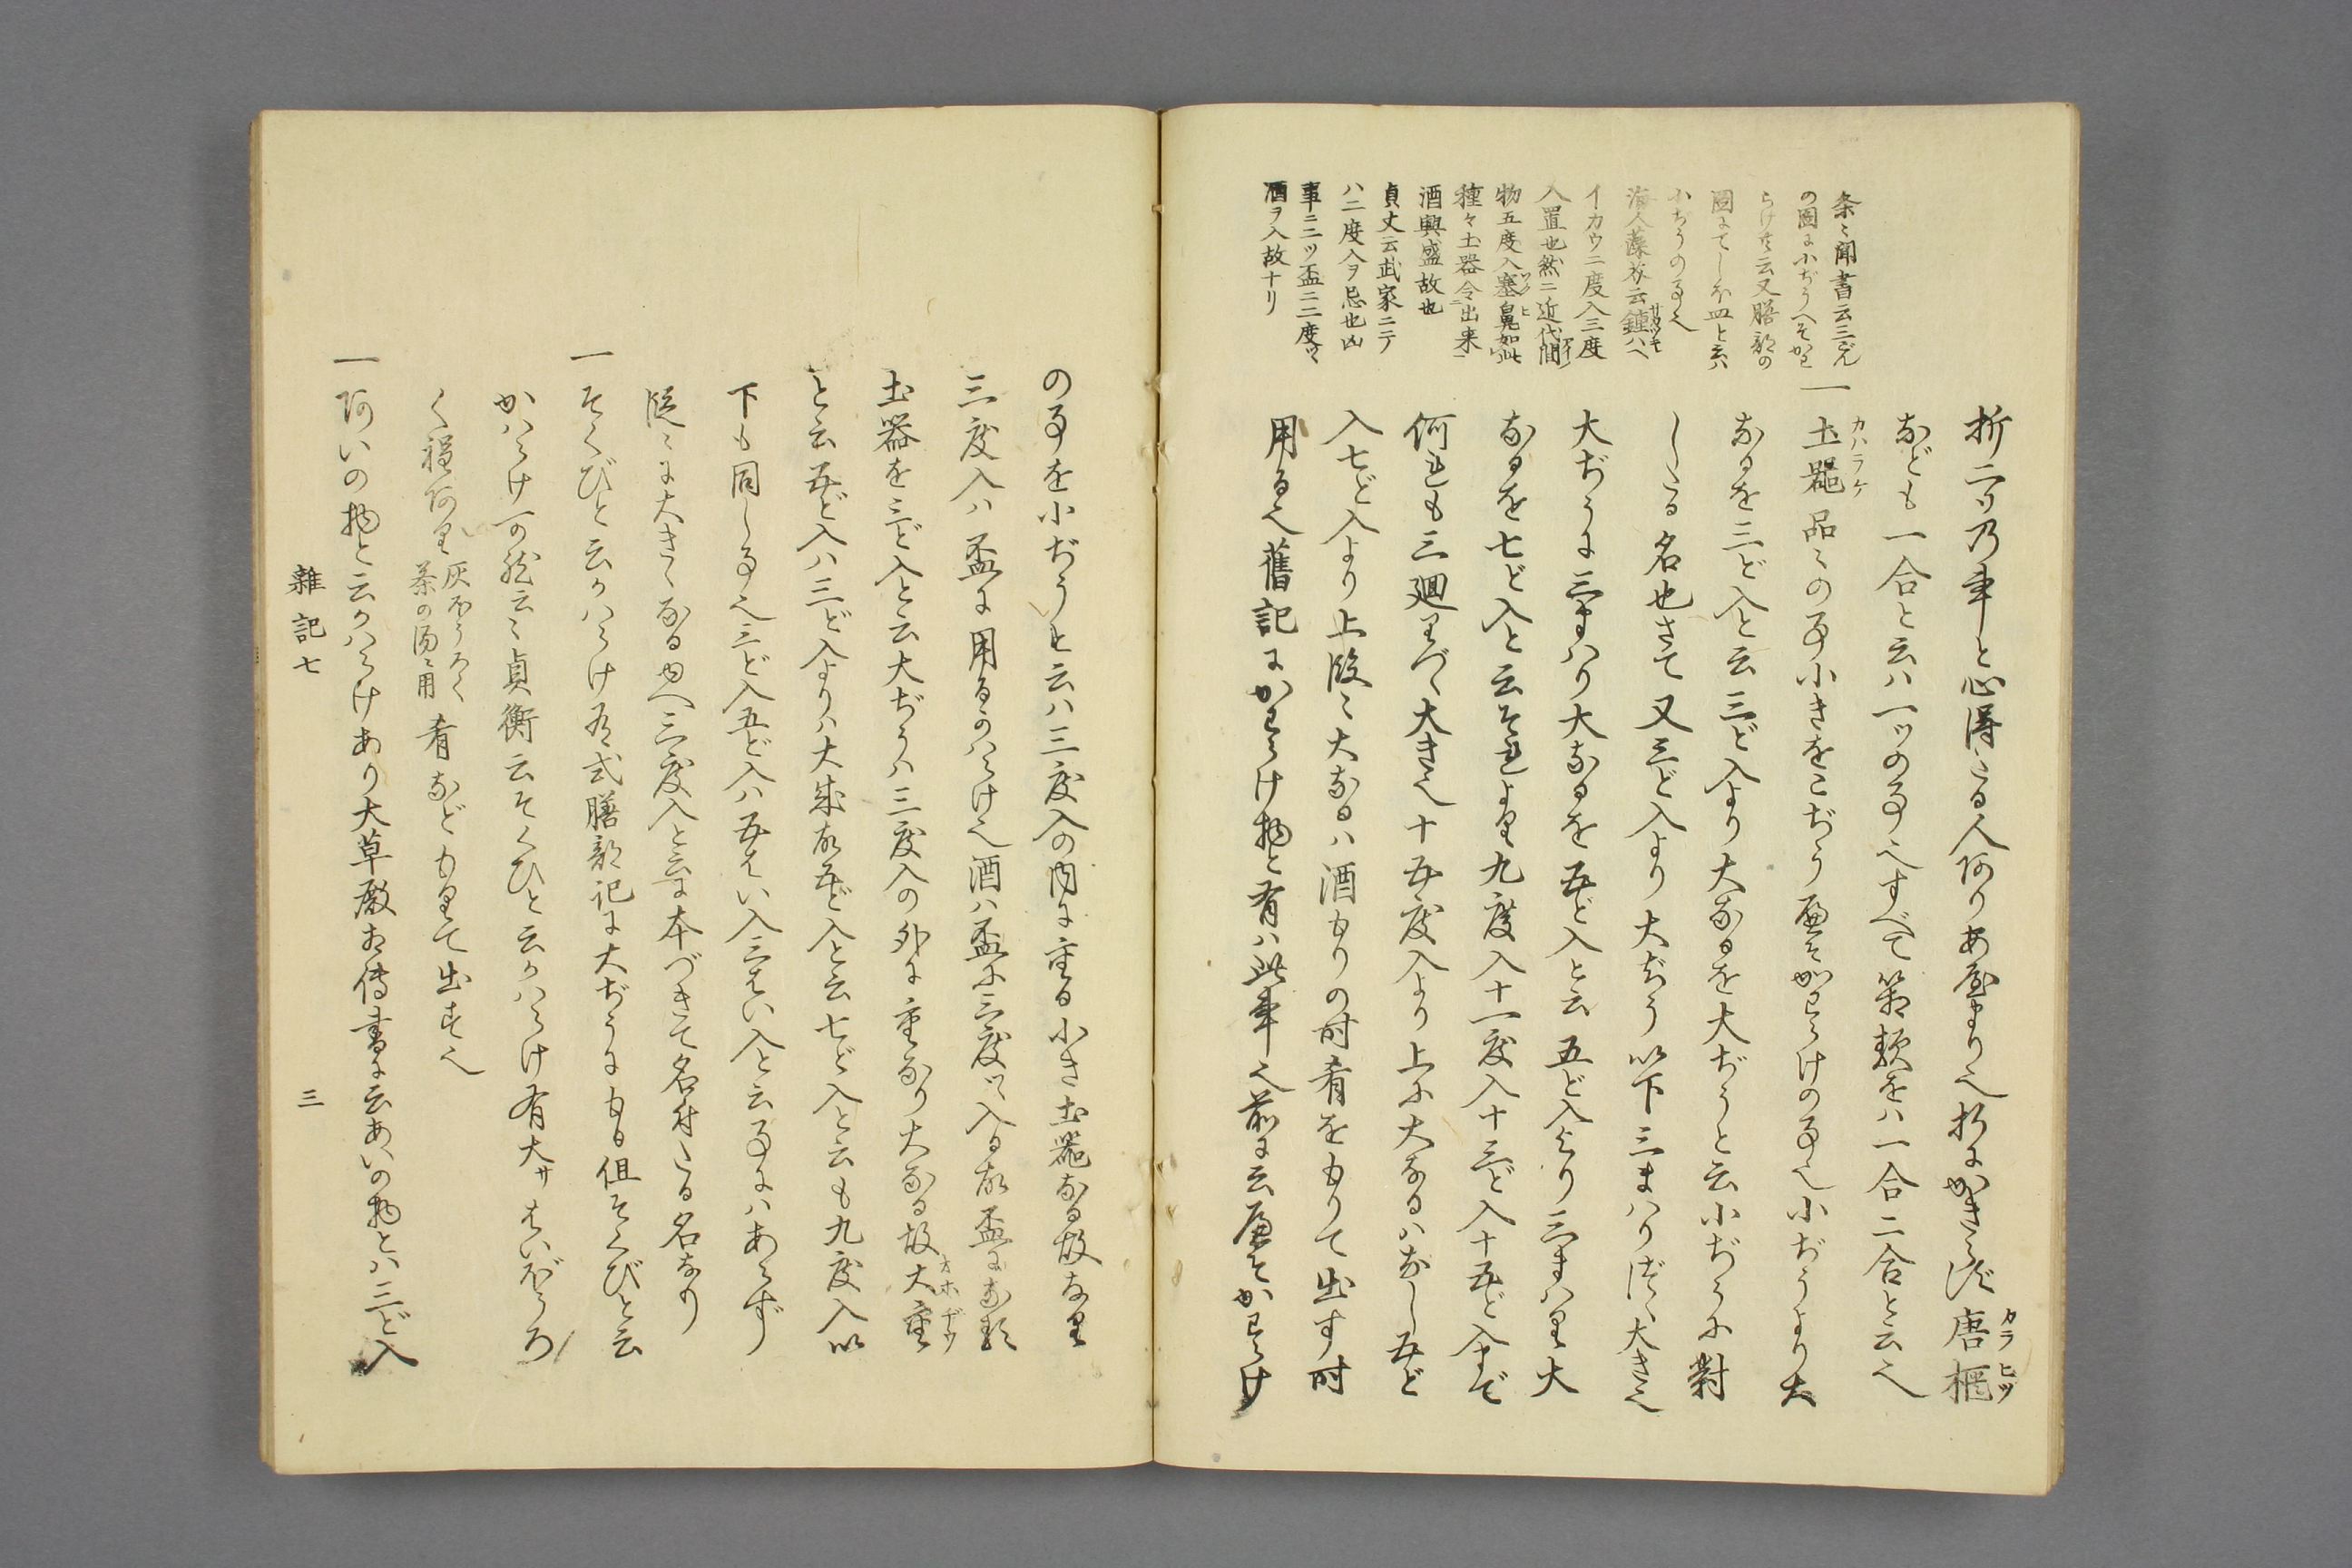 条々聞書云三ぜん
の図に小ぢうへそかわ
らけ共云又膳部の
図にてしほ皿と云ハ
小ぢうの事也
海人藻芥云鐘ハヘ
イカウ二度入三度
入置也然ニ近代間
物五度入塞鼻如此
種々土器令出来
酒興盛故也
貞丈云武家ニテ
ハ二度入ヲ忌也凶
事ニ二ツ盃ニ二度ツヽ
酒ヲ入故ナリ
折二ツ乃事と心得たる人阿りあやまり也折にかきらず唐櫃
カラヒツ
なども一合と云ハ一ツの事也すべて箱類をハ一合二合と云也
一土器品々の事小きをこぢう へそかわらけの事也小ぢうより大
カハラケ
なるを三ど入と云三ど入より大なるを大ぢうと云小ぢうに對
したる名也さて又三ど入より大ぢう以下三まハりづゝ大き也
大ぢうに三まハり大なるを五ど入と云五ど入より三まハり大
なるを七ど入と云それより九度入十一度入十三ど入十五ど入まで
何れも三廻りづゝ大き也十五度入より上に大なるハなし五ど
入七ど入より上段々大なるハ酒もりの時肴をもりて出す時
用る也舊記にかわらけ物と有ハ此事也前に云へそかわらけ
の事を小ぢうと云ハ三度入の内に重る小き土器なる故なり
三度入ハ盃に用るかハらけ也酒ハ盃に三度つゝ入る故盃になる
土器を三ど入と云大ぢうハ三度入の外に重なり大なる故大重
オホヂウ
と云五ど入ハ三ど入よりハ大成故五ど入と云七ど入と云も九度入以
下も同し事也三ど入五ど入ハ五はい入三はい入と云事にハあらず
段々に大きくなるゆへ三度入と云に本づきて名付たる名なり
一そくびと云かハらけ 式膳部記に大ぢうにもる但そくびと云
かハらけ可然云々貞衡云そくひと云かハらけ有大サはいぼうろ
く程阿り 灰ほうろく
茶の湯ニ用 肴などもりて出す也
一阿いの物と云かハらけあり大草殿相傳書に云あいの物とハ三ど入
雑記七
三